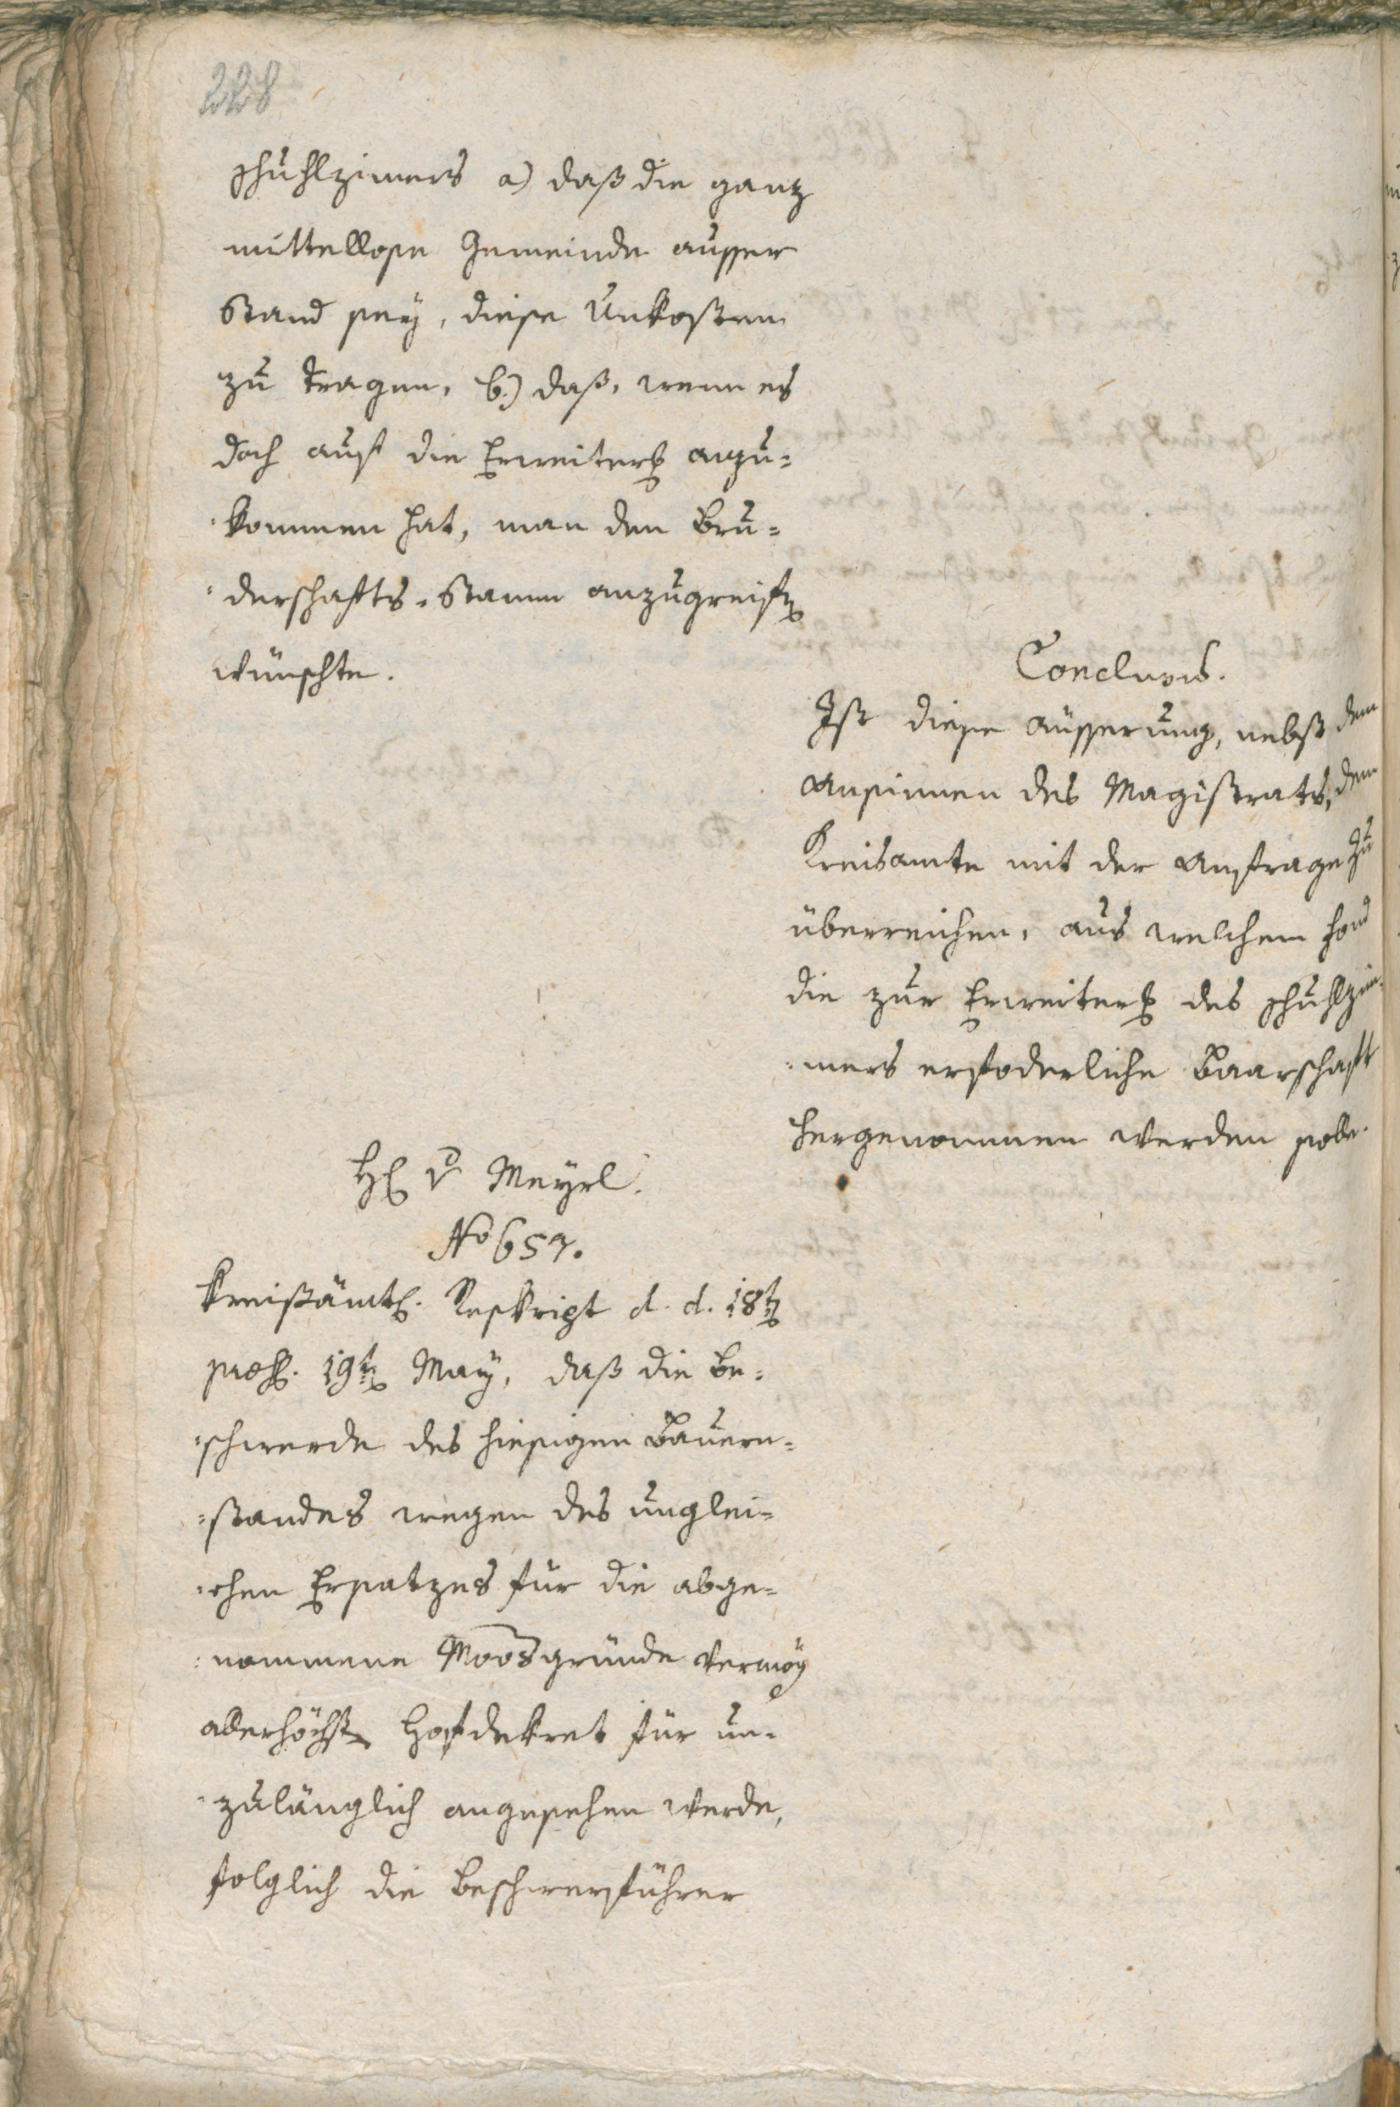 228
schuhlzimers a) daß die ganz
mittellose Gemeinde ausser
Stand sey, diese Unkosten
zu tragen, b.) daß, wenn es
doch auf die Erweiterg anzu=
kommen hat, man den Bru=
derschafts=Stamm anzugreifen
wünschte.
Conclusis.
Ist diese äusserung, nebst dem
Ansinnen des Magistrats, dem
Kreisamte mit der Anfrage zu
überreichen, aus welchem Fond
die zur Erweiterg des schuhlzim=
mers erfoderliche Baarschaft
hergenommen werden solle.
H v Meyrl.
No 657.
Kreißämtl. Reskript d. d. 18ten
praes. 19ten May, daß die Be=
schwerde des hiesigen Bauern=
standes wegen des unglei=
chen Ersatzes für die abge=
nommene Moosgründe vermög
allerhöchsten Hofdekret für un=
zulänglich angesehen werde,
folglich die Beschwerführer